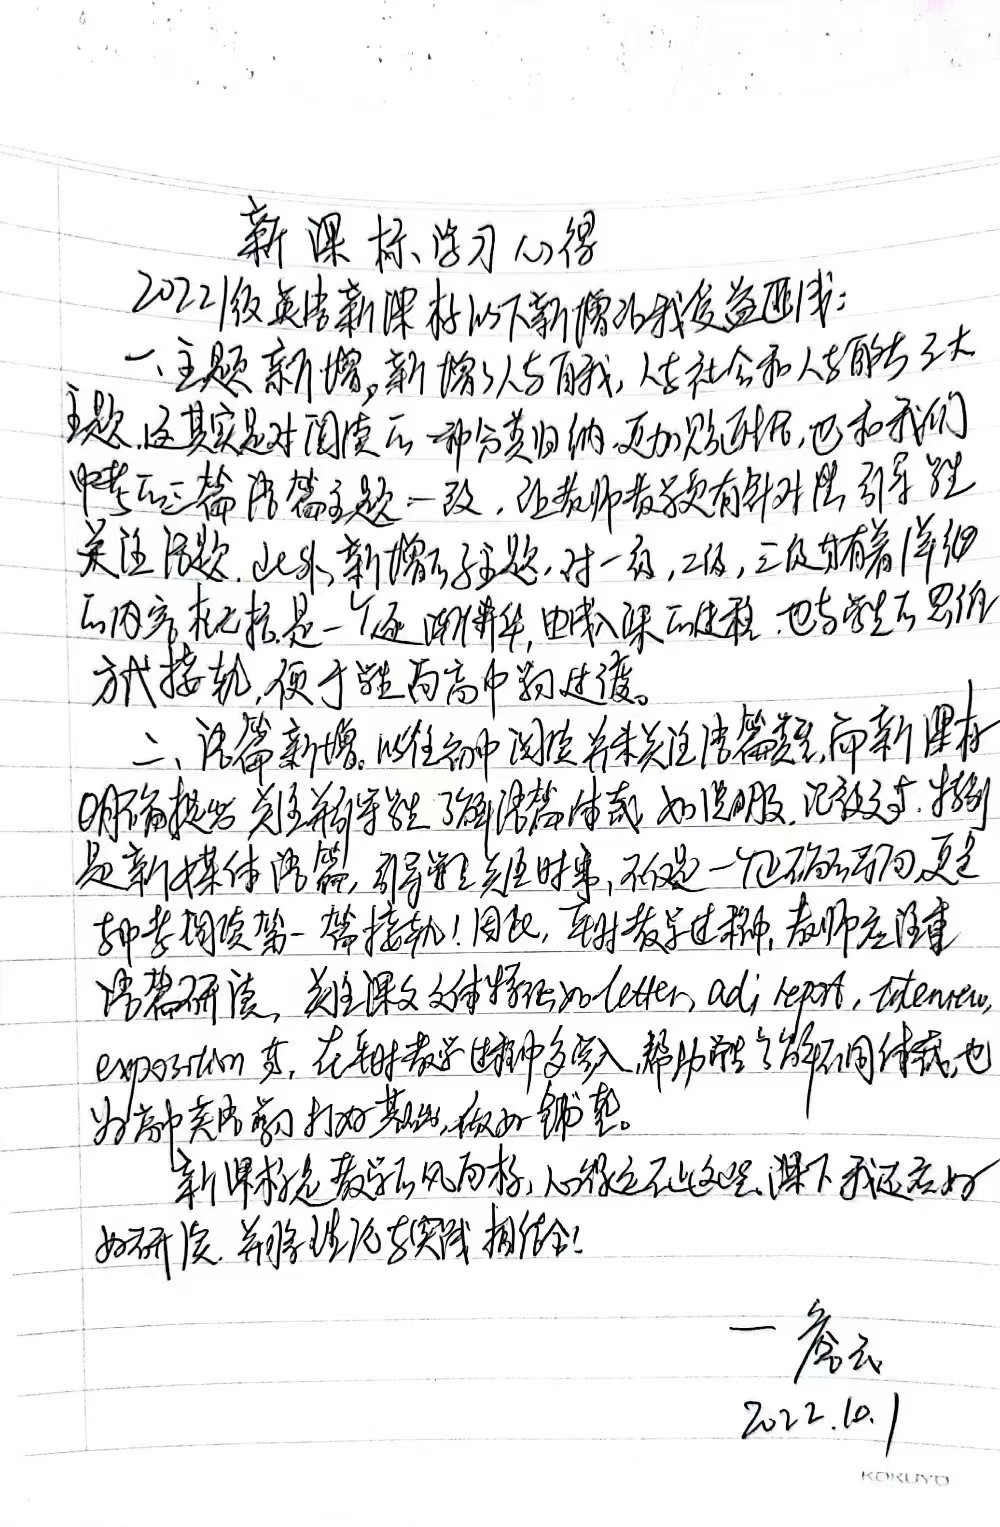 新课标学习心得
2022级英语新课标以下新增的我受益匪浅：
一、主题新增，新增了人与自我，人与社会和人与自然三大
主题，这其实是对阅读的一种分类归纳，更加，也和我们
中考的三篇语篇主题一致，让教师教学更有针对性引导学生
关注话题，此外，新增的子主题，对一级，二级，三级有着详细
的内容概括，是一个逐渐，由浅入深的过程，也与学生的思维
方式接轨，便于学生向高中的过渡。
二、语篇新增。以往初中阅读并未关注语篇类型，而新课标
明确提出关注并引导学生了解语篇体裁，如说明文，记叙文等，特别
是新媒体语篇，引导学生关注时事，不仅是一个，更是
与中考阅读第一篇接轨！因此，平时教学过程中，教师应注重
语篇研读，关注课文文体特征如letter, ad, report, interview,
exposition等，在平时教学过程中多导入，帮助学生了解不同体裁，也
为高中英语学习打好基础，做好铺垫。
新课标是教学的风向标，心得远不止这些，课下我还应好
好研读，并将理论与实践相结合！
一 詹云
2022.10.1
KOKUYO